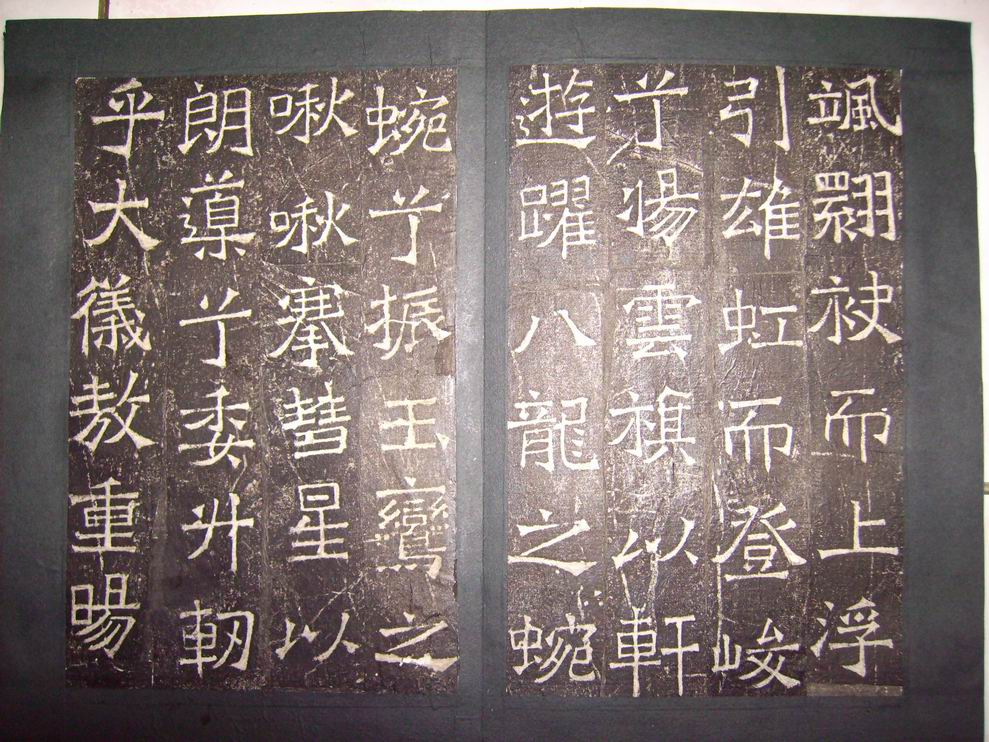 颯翾袂而上浮
引雄虹而登峻
兮揚雲旗以軒
遊躍八龍之蜿
蜿兮振玉鸞之
啾啾搴彗星以
朗導兮委升軔
乎大儀敖重暘